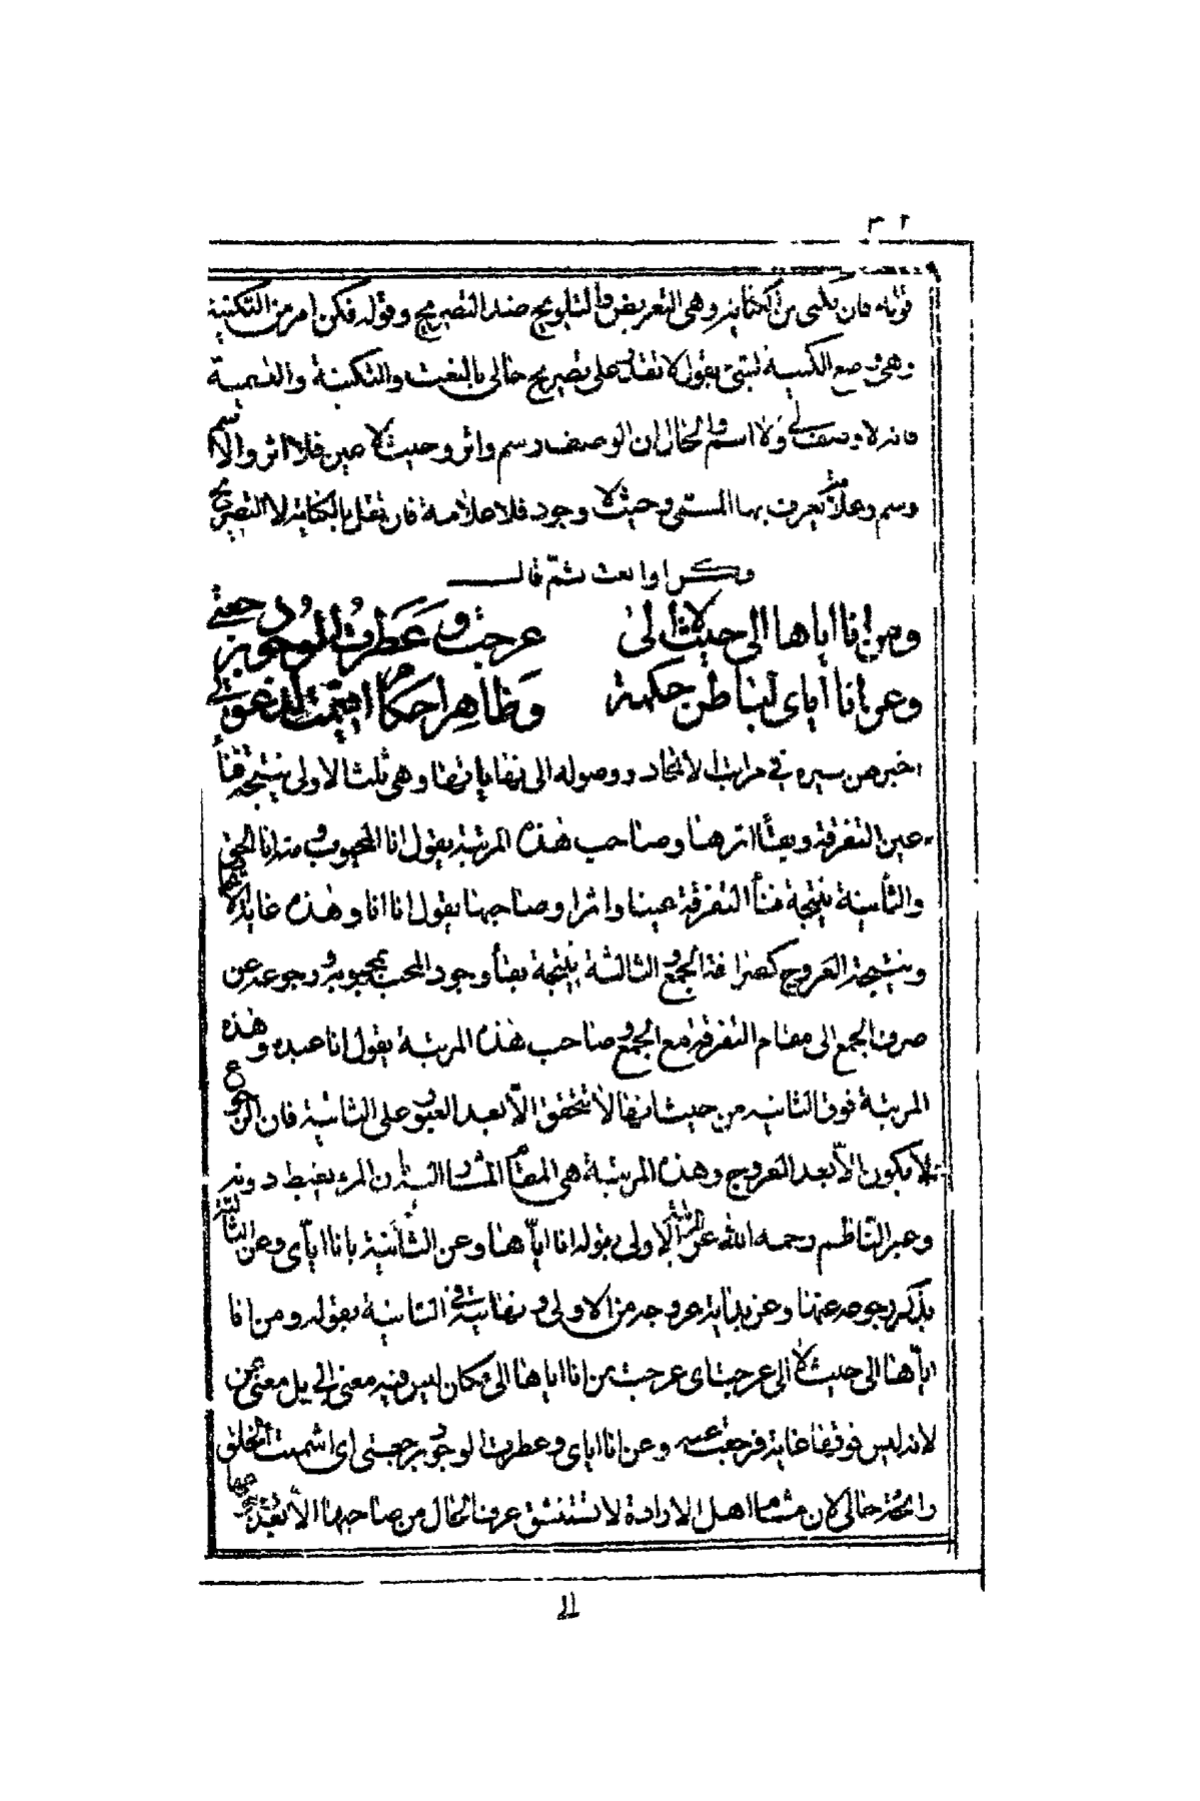 قوله فان يكنى من الكناية وهى التعريض والتلويح ضد التصريح وقوله فكن امر من التكنية
وهى وضع الكنية يقول لا تقل على تصريح حالى بالنعت والتكنية والتسمية
فانه لا وصف لى ولا اسم والحال ان الوصف رسم واثر وحيث لا عين فلا اثر والاسم
وسم وعلامة يعرف بها المسمى وحيث لا وجود فلا علامة فان تقل بالكناية لا التصريح
وكن او انعت ثم قال
ومن انا اياها الى حيث لا الى عرجت وعطرت الوجود برجعتى
وعن انا اياى لباطن حكمة وظاهر احكام اقيمت لدعوتى
اخبر عن سيره فى مراتب الاتحاد ووصوله الى نهاياتها وهى ثلث الاولى نتيجة فناء
عين التفرقة وبقاء اثرها وصاحب هذه المرتبة يقول انا المحبوب ومنه انا الحق
والثانية نتيجة فناء التفرقة عينا واثرا وصاحبها يقول انا انا وهذه غاية
ونتيجة العروج الجمع والثالثة نتيجة بقاء وجود المحب بمحبوبه ورجوعه عن
صرف الجمع الى مقام التفرقة مع الجمع وصاحب هذه المرتبة يقول انا عبده وهذه
المرتبة فوق الثانية من حيث انها لا تتحقق الا بعد العبور على الثانية فان الرجوع
لا يكون الا بعد العروج وهذه المرتبة هى المقام المشار اليه
وعبر الناظم رحمه الله عن المرتبة الاولى بقوله انا اياها وعن الثانية بانا اياى وعن الثالثة
بذكر رجوعه عنها وعن بداية عروجه من الاولى ونهايته فى الثانية بقوله ومن انا
اياها الى حيث لا الى عرجت اى عرجت من انا اياها الى مكان ليس فيه معنى الى بل معنى من
لانه ليس فوقها غاية فرجعت عنه وعن انا اياى وعطرت الوجود برجعتى اى اشممت الخلق
رائحة حالى لان مشام اهل الارادة لا تستنشق عرف الحال من صاحبها الا بعد
11